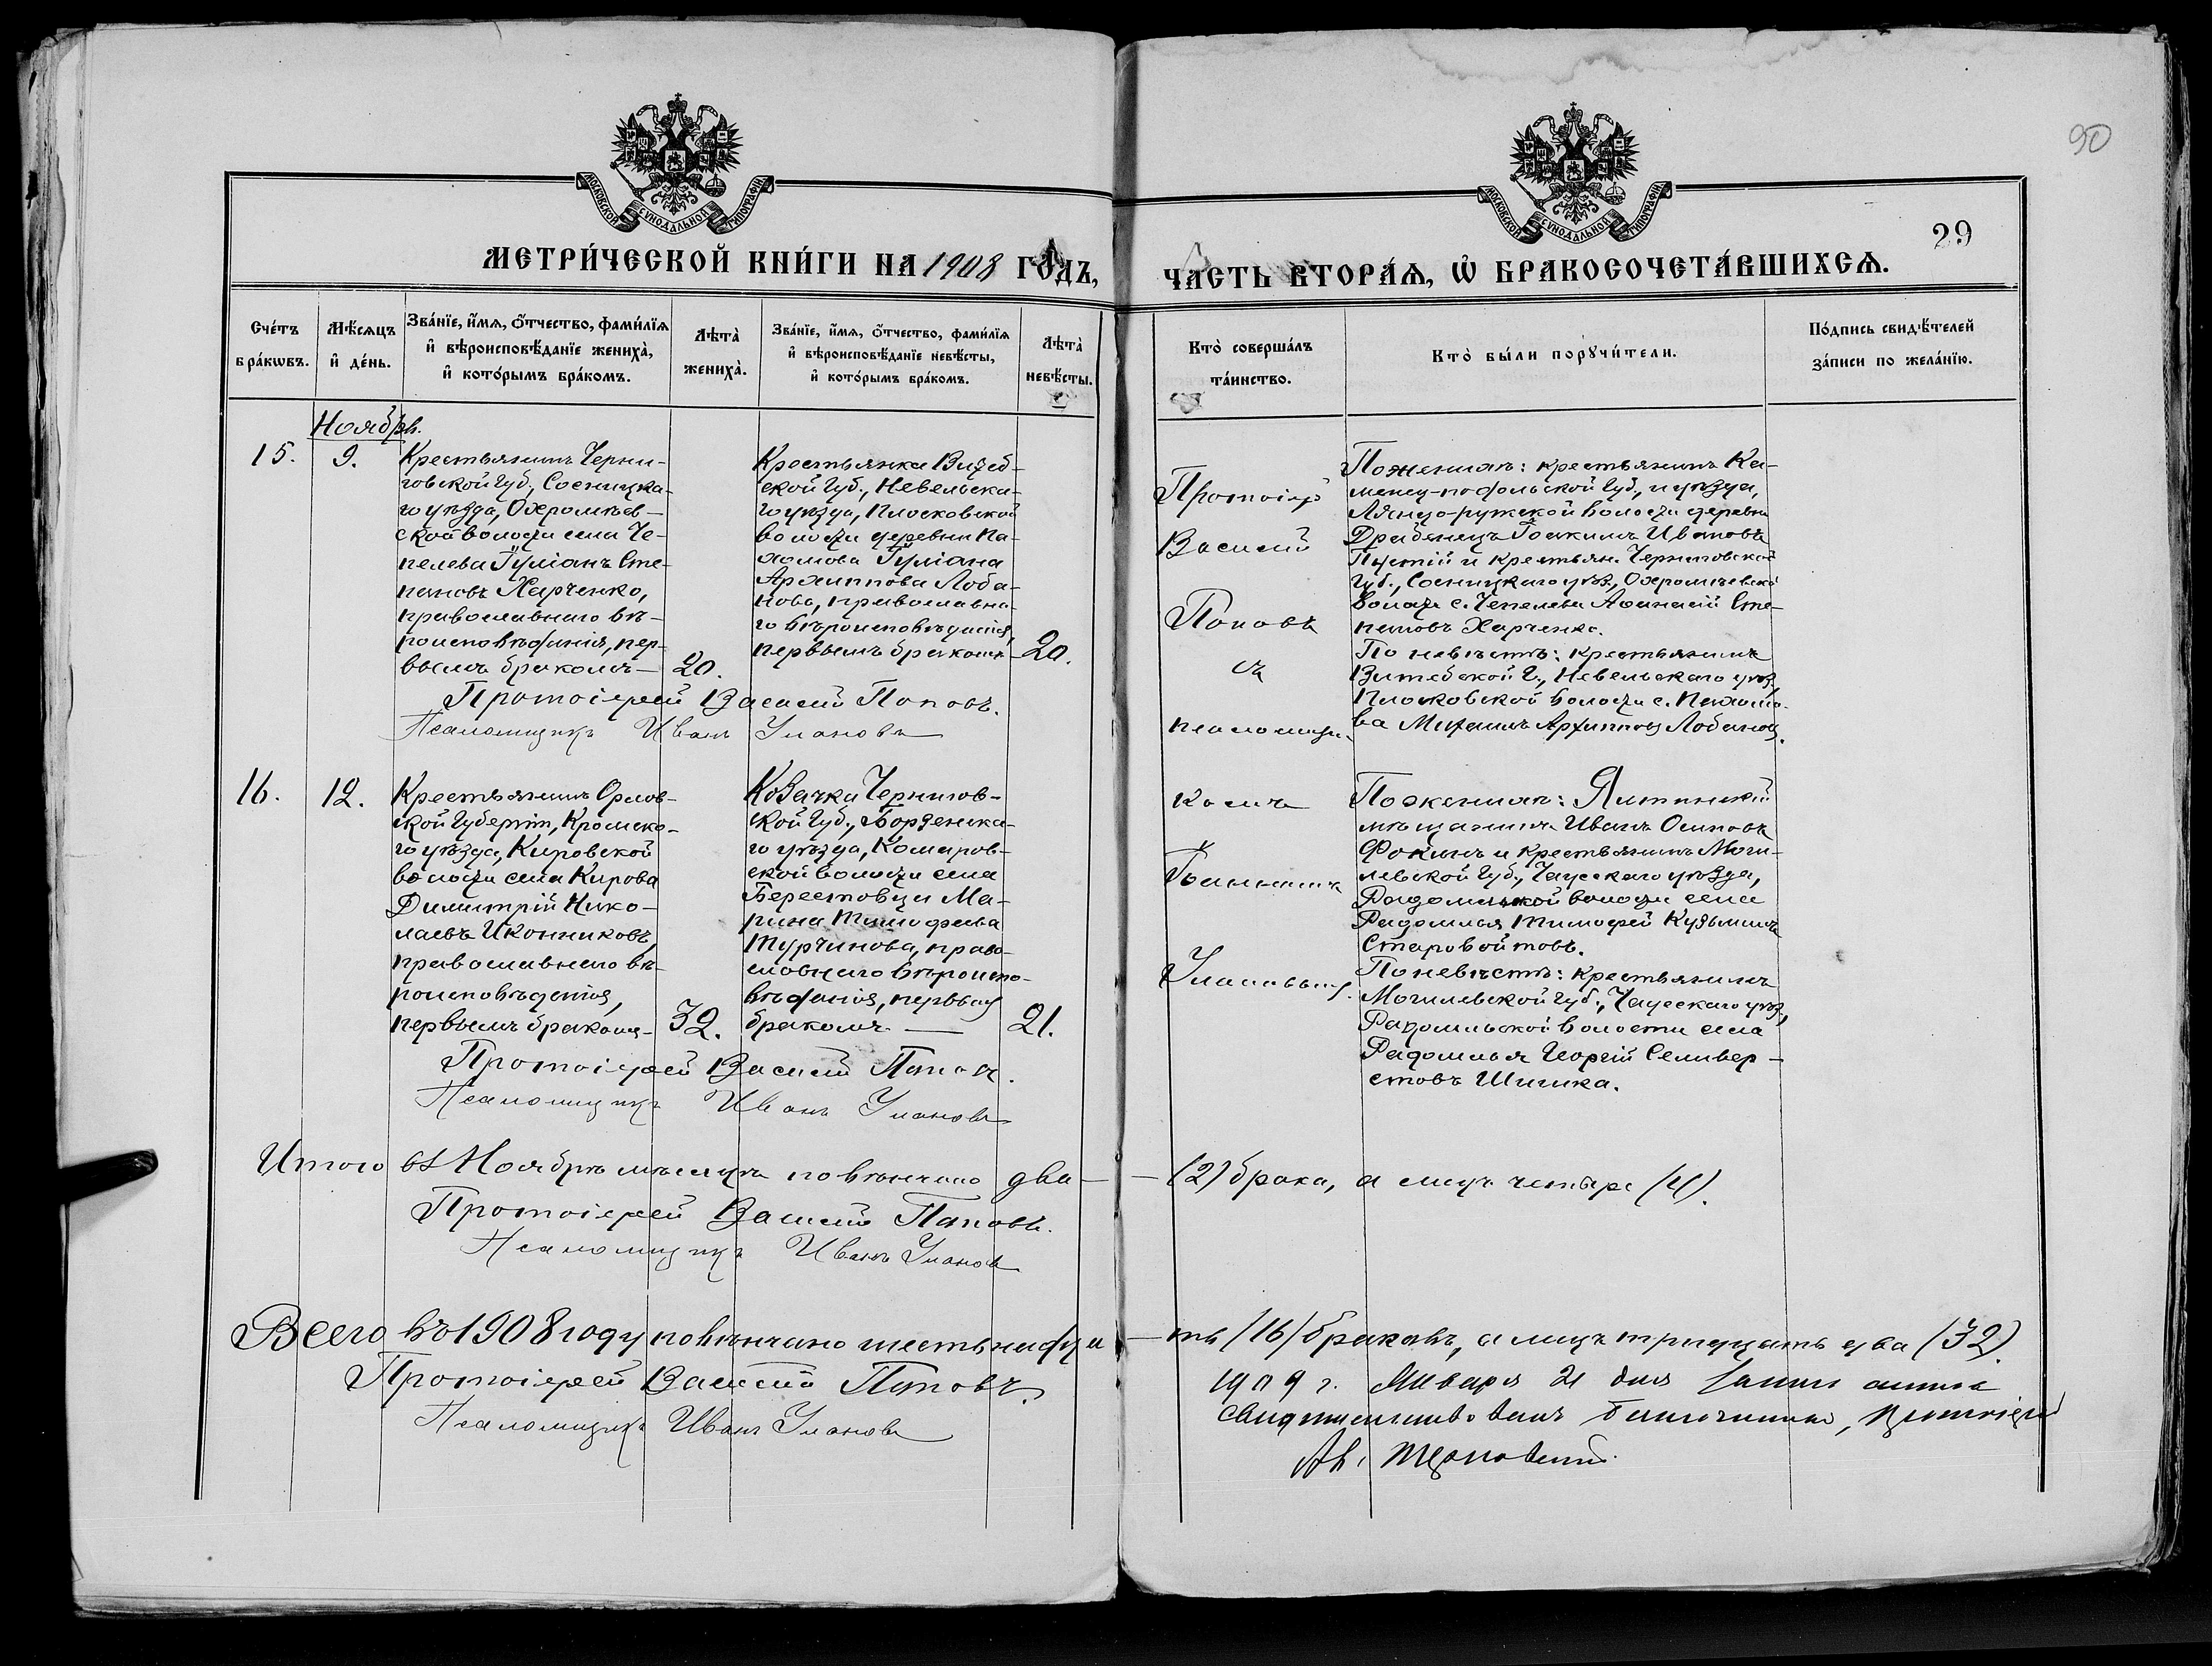 90
29
МОСКОВСКОЙ СѴНОДАЛЬНОЙ ТИПОГРАФІИ
МОСКОВСКОЙ СѴНОДАЛЬНОЙ ТИПОГРАФІИ
МЕТРИ́ЧЕСКОЙ КНИ́ГИ НА 1908 ГО́ДЪ,
ЧАСТЬ ВТОРА́Ѧ, Ѡ҆ БРАКОСОЧЕТА́ВШИХСѦ.
Сче́тъ бра́кѡвъ.
Мѣ́сяцъ и҆ де́нь.
Зва́нїе, и҆́мѧ, о҆́тчество, фами́лїѧ
и҆ вѣроисповѣ́данїе жениха̀,
и҆ кото́рымъ бра́комъ.
Лѣта̀ жениха̀.
Зва́нїе, и҆́мѧ, о҆́тчество, фами́лїѧ
и҆ вѣроисповѣ́данїе невѣ́сты,
и҆ кото́рымъ бра́комъ.
Лѣта̀ невѣ́сты.
Кто̀ соверша́лъ
та́инство.
Кто̀ бы́ли порꙋчи́тели.
По́дпись свидѣ́телей
за́писи по жела́нїю.
Ноябрь.
15.
9.
Крестьянинъ Черни-
говской Губ., Сосницка-
го уѣзда, Охромѣев-
ской волости села Че-
пелева Іуліанъ Сте-
пановъ Харченко,
православнаго вѣ-
роисповѣданія, пер-
вымъ бракомъ —
20.
Крестьянка Витеб-
ской Губ., Невельска-
го уѣзда, Плосковской
волости деревни Па-
хомова Іуліана
Архиппова Лоба-
нова, православна-
го вѣроисповѣданія,
первымъ бракомъ —
20.
Протоіерей Василій Поповъ.
Псаломщикъ Иванъ Улановъ
Протоіер
Василій
Поповъ
съ
псаломщи-
комъ
Іоанномъ
Улановымъ.
По женихѣ: крестьянинъ Ка-
менец-подольской Губ., и уѣзда,
волости деревни
Іоакимъ Ивановъ
и крестьян. Черниговской
Губ., Сосницкаго уѣз., Охромѣевской
волости с. Чепелева Аѳанасій Сте-
пановъ Харченко.
По невѣстѣ: крестьянинъ
Витебской Г., Невельскаго уѣз.,
Плосковской волости с. Пахомо-
ва Михаилъ Архиппов Лобанов.
16.
12.
Крестьянинъ Орлов-
ской Губерніи, Кромско-
го уѣзда, Кировской
волости села Кирова
Димитрій Нико-
лаевъ Иконниковъ,
православнаго вѣ-
роисповѣданія,
первымъ бракомъ —
32.
Козачка Чернигов-
ской Губ., Борзенска-
го уѣзда, Комаров-
ской волости села
Берестовца Ма-
рина Тимоѳеева
Турчинова, право-
славнаго вѣроиспо-
вѣданія, первым
бракомъ —
21.
Протоіерей Василій Поповъ.
Псаломщикъ Иванъ Улановъ
По женихѣ: Ялтинскій
мѣщанинъ Иванъ Осиповъ
Фокинъ и крестьянинъ Моги-
левской Губ., Чаусскаго уѣзда,
Радомльской волости села
Радомля Тимоѳей Кузьминъ
Старовойтовъ.
По невѣстѣ: крестьянинъ
Могилевской Губ., Чаусскаго уѣз.,
Радомльской волости села
Радомля Георгій Селивер-
стовъ Шишка.
Итого въ Ноябрѣ мѣсяцѣ повѣнчано два — (2) брака, а лицъ четыре (4).
Протоіерей Василій Поповъ.
Псаломщикъ Иванъ Улановъ
Всего въ 1908 году повѣнчано шестьнадца-ть (16) браковъ, а лицъ тридцать два (32).
Протоіерей Василій Поповъ.
Псаломщикъ Иванъ Улановъ
1909 г. Января 21 дня
свидѣтельствовалъ благочинный, протоіерей
Ал. Терновский